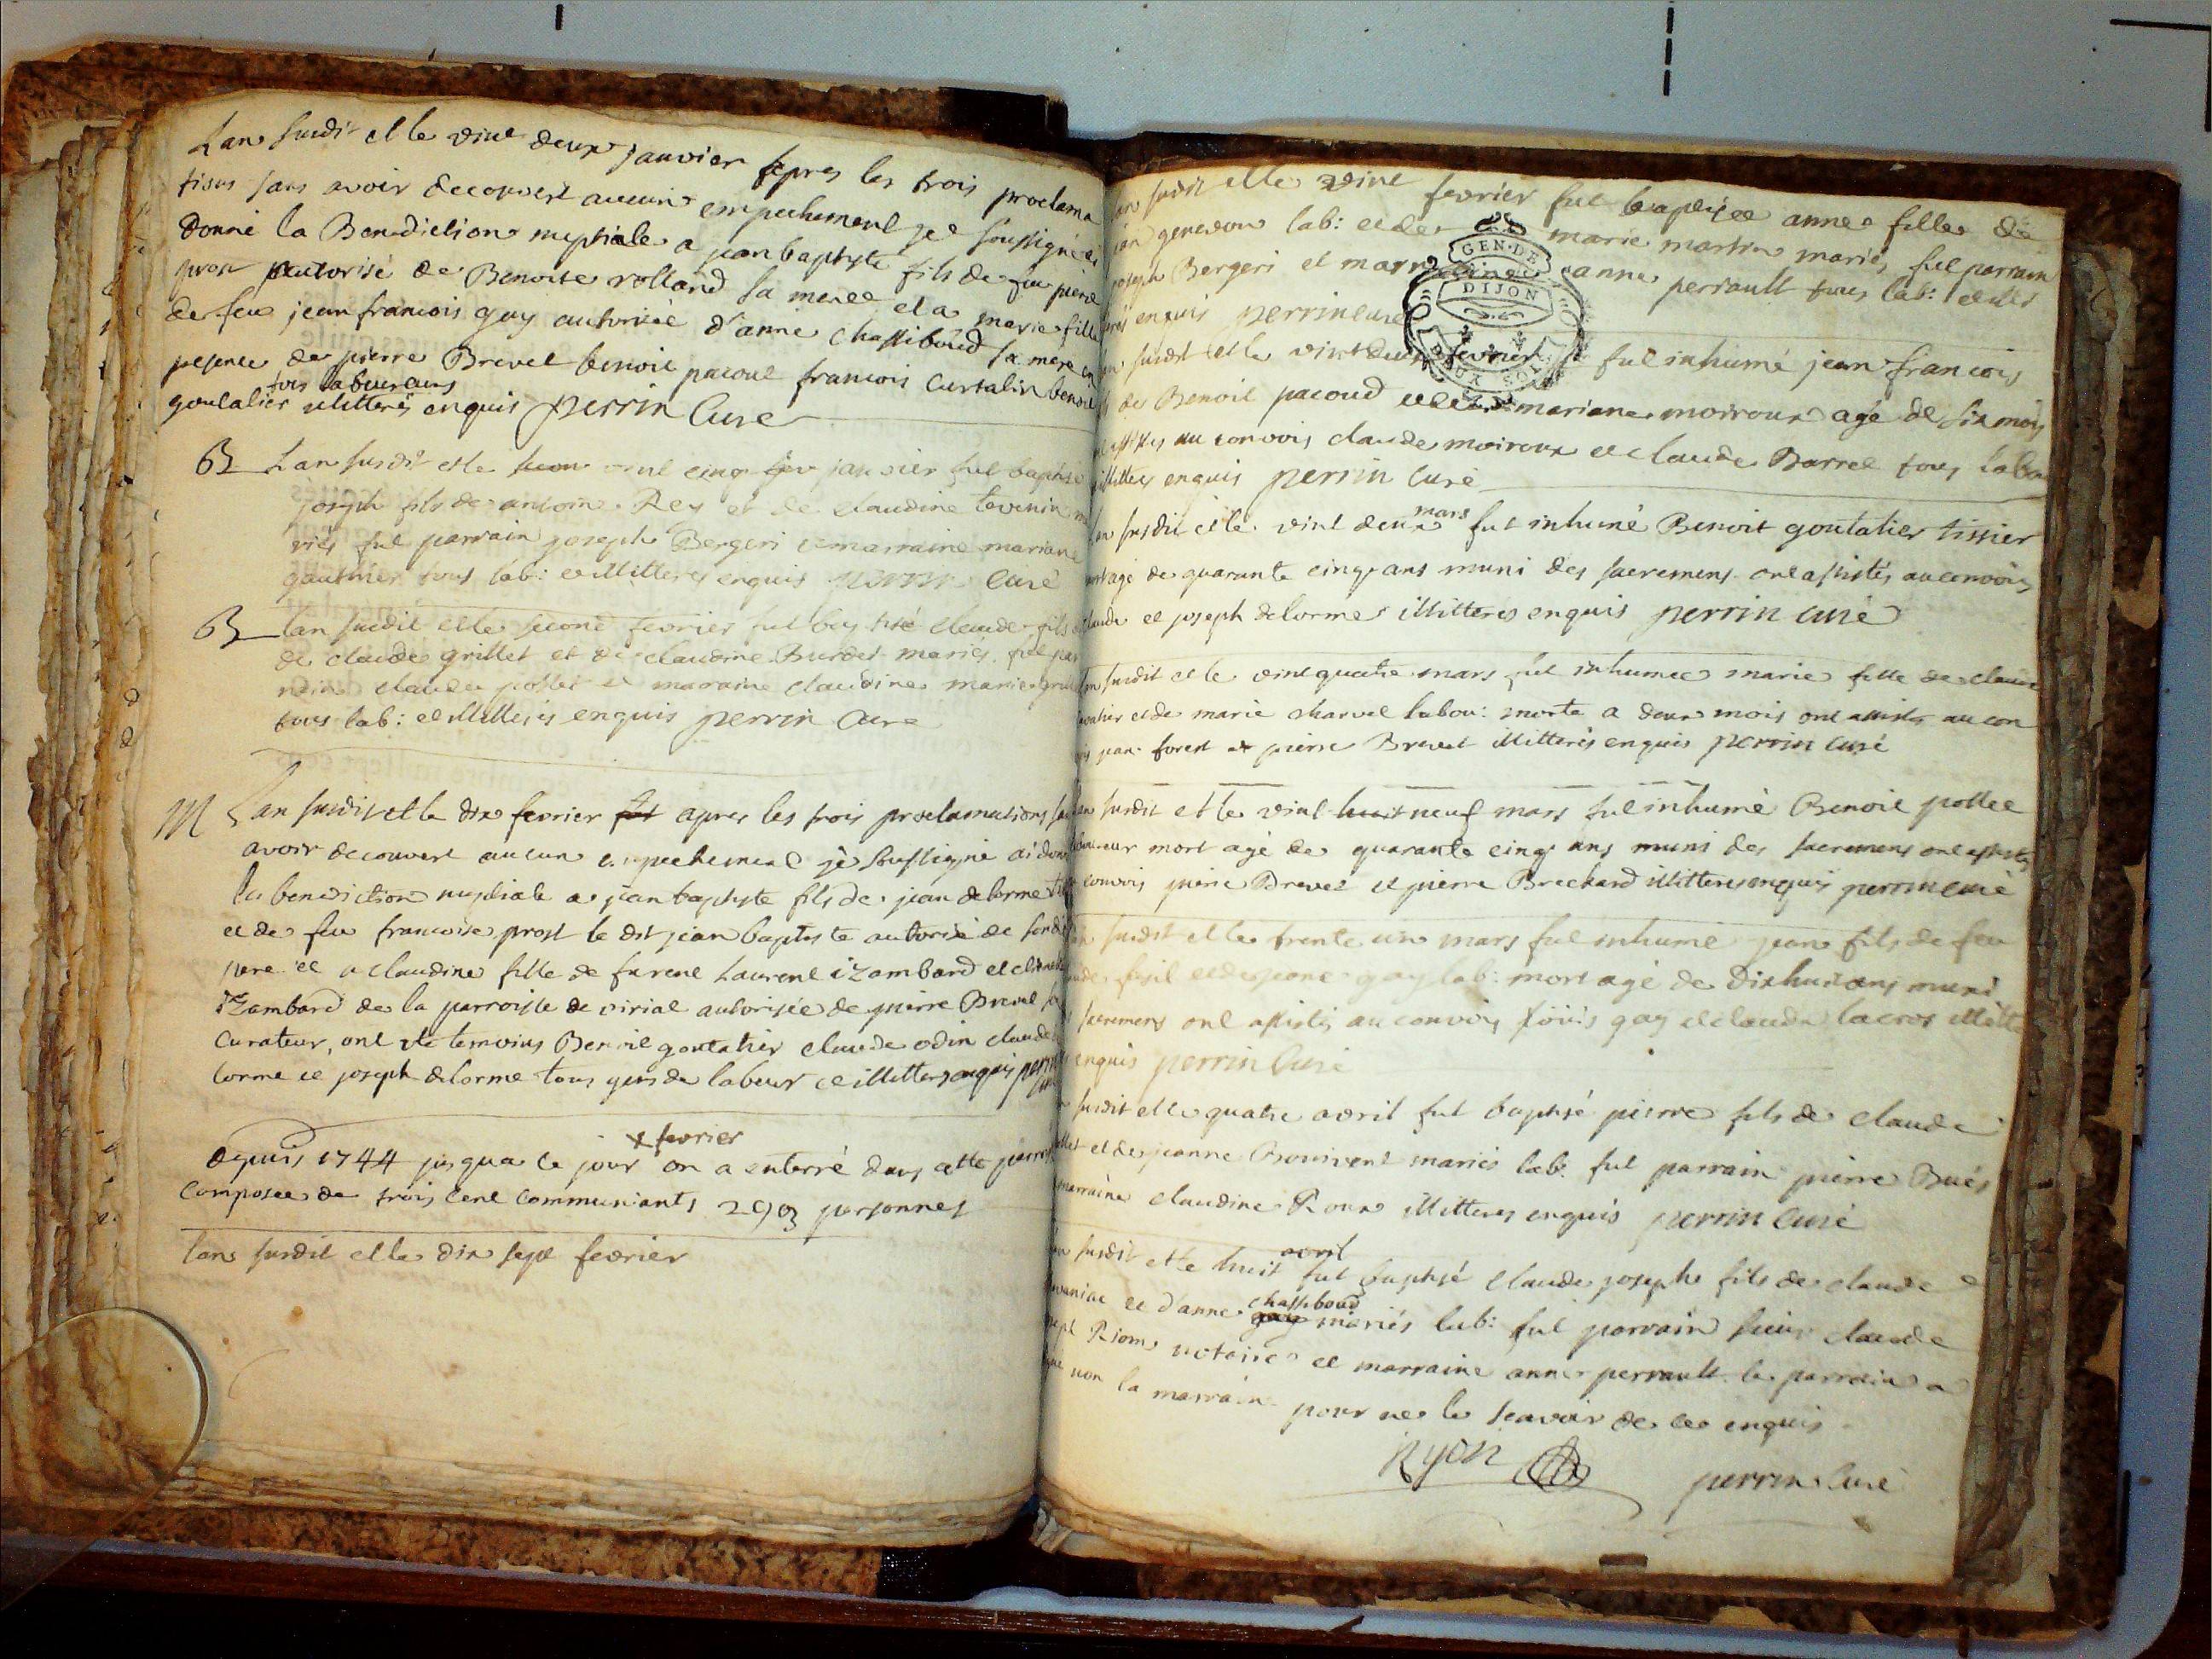 Lan susdit et le vint deux janvier apres les trois proclama
tions sans avoir decouvert aucun empechement je soussigné ai
donné la Benediction nuptiale a jean baptyste fils de feu pierre
prost autorisé de Benoite rolland sa mere et a marie fille
de feu jean francois gay autorisée d'anne chassiboud sa mere en
presence de pierre Brevet benoit pacout francois Curtalin benoit
tous laboureurs
goutalier illitterés enquis perrin Curé
B Lan susdit et le vint cinq janvier fut baptisé
joseph fils de antoine Rey et de claudine tevenin ma
riés fut parrain joseph Bergeri et marraine mariane
gauthier tous lab: et illitterés enquis perrin Curé
B Lan susdit et le second fevrier fut baptisé claude fils
de claude grillet et de claudine Burdet mariés fut par
rain claude pollet et maraine claudine marie
tous lab: et illitterés enquis perrin Cure
M Lan susdit et le dix fevrier fut apres les trois proclamations sans
avoir decouvert aucun empechement je soussigné ai donné
la benediction nuptiale a jean baptyste fils de jean delorme
et de feu francoise prost le dit jean baptiste autorisé de sondit
pere et a claudine fille de furent Laurent izambard et
izambard de la parroisse de virial autorisée de pierre Brevet son
Curateur, ont eté temoins Benoit goutalier claude odin claude
lorme et joseph delorme tous gens de labeur et illitteres enquis perrin
curé
+ fevrier
depuis 1744 jusqua ce jour on a enterré dans cette parroisse
composee de trois cent communiants 293 personnes
lan susdit et le dix sept fevrier
lan susdit et le vint fevrier fut baptisee anne fille de
jean genevon lab: et de marie martin mariés, fut parrain
joseph Bergeri et marraine anne perrault tous lab: et illit
terés enquis perrin curé
GEN. DE
DIJON
lan susdit et le vint deux fevrier fut inhumé jean francois
fils de Benoit pacoud et de mariane moiroux agé de six mois
assistés au convois claude moiroux et claude Barret tous labou
illitteres enquis perrin Curé
mars
lan susdit et le vint deux fut inhumé Benoit goutalier tissier
mort agé de quarante cinq ans muni des sacremens ont assistés au convois
claude et joseph delorme illitteres enquis perrin curé
lan susdit et le vint quatre mars fut inhumee marie fille de claude
et de marie charvet labou: morte a deux mois ont assistés au con
vois jean forest et pierre Brevet illitterés enquis perrin curé
lan susdit et le vint huit neuf mars fut inhumé Benoit pollet
laboureur mort agé de quarante cinq ans muni des sacremens ont assistés
convois pierre Brevet et pierre Brechard illitteres enquis perrin curé
lan susdit et le trente un mars fut inhumé jean fils de feu
claude fusil et de jeane gay lab: mort agé de dixhuit ans muni
sacremens ont assistés au convois gay et claude lacros illitt
enquis perrin Curé
lan susdit et le quatre avril fut baptisé pierre fils de claude
pollet et de jeanne Bonnivent mariés lab: fut parrain pierre Bués
marraine claudine Roux illitteres enquis perrin Curé
avril
lan susdit et le huit fut baptisé claude joseph fils de claude
et d'anne chassiboud gay mariés lab: fut parrain sieur claude
Riom notaire et marraine anne perrault le parrain a
non la marraine pour ne le scavoir de ce enquis
Ryon perrin Curé